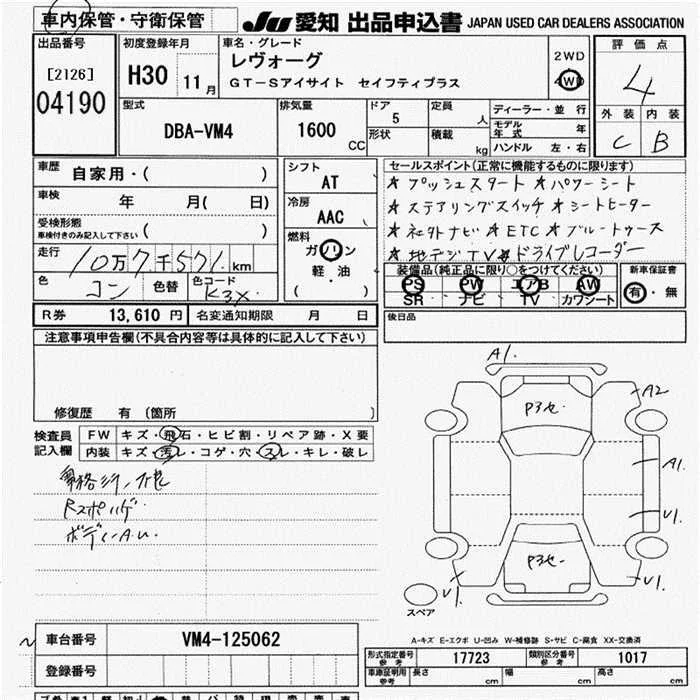 車内保管・守衛保管
JU 愛知 出品申込書 JAPAN USED CAR DEALERS ASSOCIATION
出品番号
[2126]
04190
初度登録年月
H30 11月
車名・グレード
レヴォーグ
GT-Sアイサイト セイフティプラス
2WD
4WD
評価点
4
外装 内装
C B
型式
DBA-VM4
排気量
1600
CC
ドア
5
形状
定員
人
積載
kg
ディーラー・並行
モデル年式 年
ハンドル 左・右
車歴
自家用・( )
車検
年 月( 日)
受検形態
車検付きのみ記入して下さい ( )
走行
10万7千571km
色
コン
色替
色コード
K3X
シフト
AT
冷房
AAC
燃料
ガソリン
軽・油
( )
セールスポイント(正常に機能するものに限ります)
★プッシュスタート ★パワーシート
★ステアリングスイッチ ★シートヒーター
★社外ナビ ★ETC ★ブルートゥース
★地デジTV ★ドライブレコーダー
装備品(純正品に限り○をつけてください)
PS PW エアB AW
SR ナビ TV カワシート
新車保証書
有・無
R券 13,610円
名変通知期限 月 日
後日品
注意事項申告欄(不具合内容等は具体的に記入して下さい)
修復歴 有 (箇所 )
検査員記入欄
FW キズ・飛石・ヒビ割・リペア跡・X要
内装 キズ・汚レ・コゲ・穴・スレ・キレ・破レ
ボディーA.U.
A1.
A2
A1.
U1.
U1.
U1.
スペア
車台番号
VM4-125062
登録番号
A-キズ E-エクボ U-凹み W-補修跡 S-サビ C-腐食 XX-交換済
形式指定番号
参考
17723
類別区分番号
参考
1017
車庫証明用
参考
長さ cm 幅 cm 高さ cm